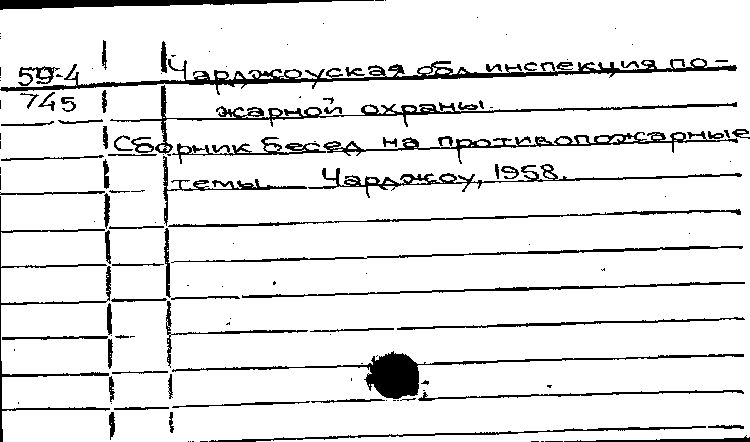 59-4 Чарджоуская обл инспекция по-
745 жарной охраны.
Сборник бесед на противопожарные
темы. Чарджоу, 1958.